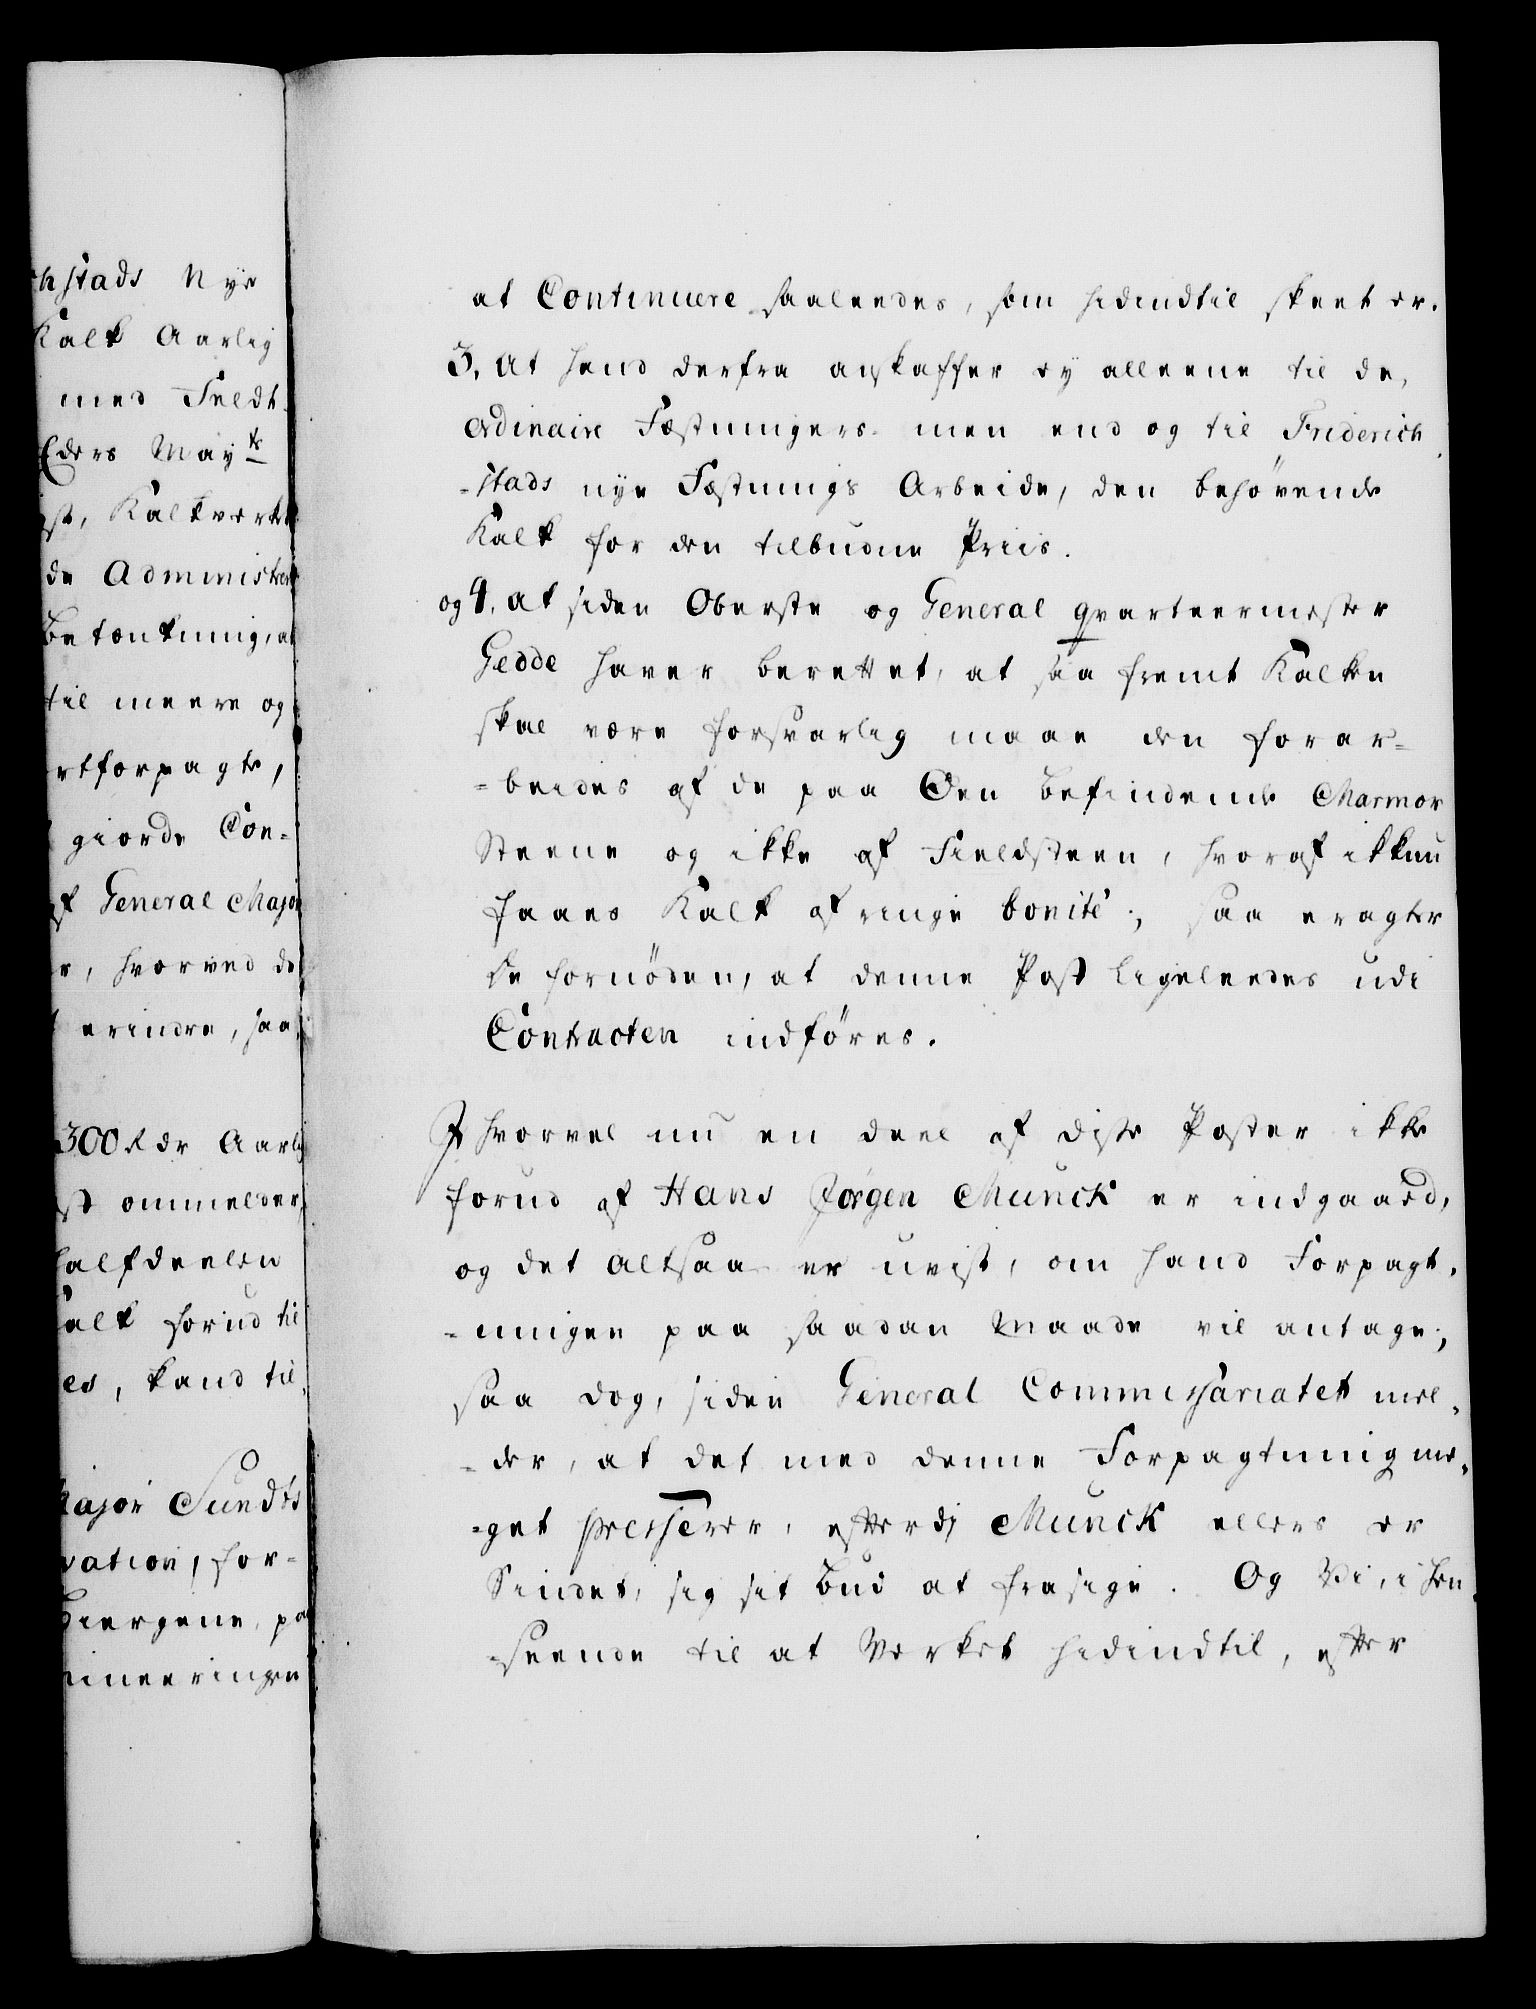 hstads Nye
Kalk Aarlig
med Feldt-
Eders May<sup>ts</sup>
st, Kalkverket
de Administrer
Betænkning, at
til meere og
rtforpagte,
giorde Con=
af General Major
r, hvorved de
erindre, saa
300 Rdr Aarlig
st ommelder,
halfdeelen
alk forud til
es, kand til,
Major Sundts
vation, for=
Biergene, paa
mineeringen
at Continuere saaleedes, som hidindtil skeet er.
3, At hand derfra anskaffer ey alleene til de,
ordinaire Fæstningers men end og til Friderich
-stads nye Fæstnings Arbeide, den behøvende
Kalk for den tilbudne Priis.
og 4, at siden Oberste og General Qvarteermester
Gedde haver berettet, at saa fremt Kalken
skal være forsvarlig maae den forar=
=beides af de paa Øen befindende Marmor
Steene og ikke af Fieldsteen, hvoraf ikkun
faaes Kalk af ringe bonité; saa eragter
de fornøden, at denne Post ligeleedes udi
Contracten indføres.
Ihvorvel nu en deel af disse Poster ikke
forud af Hans Jørgen Munck er indgaaed,
og det altsaa er uvist, om hand Forpagt-
-ningen paa saadan Maade vil antage;
saa dog, siden General Commissariatet mel-
-der, at det med denne Forpagtning me-
-get presserer, efterdj Munck ellers er
Sindet, sig sit bud at frasige. Og Vi, i hen
-seende til at Verket hidindtil, efter